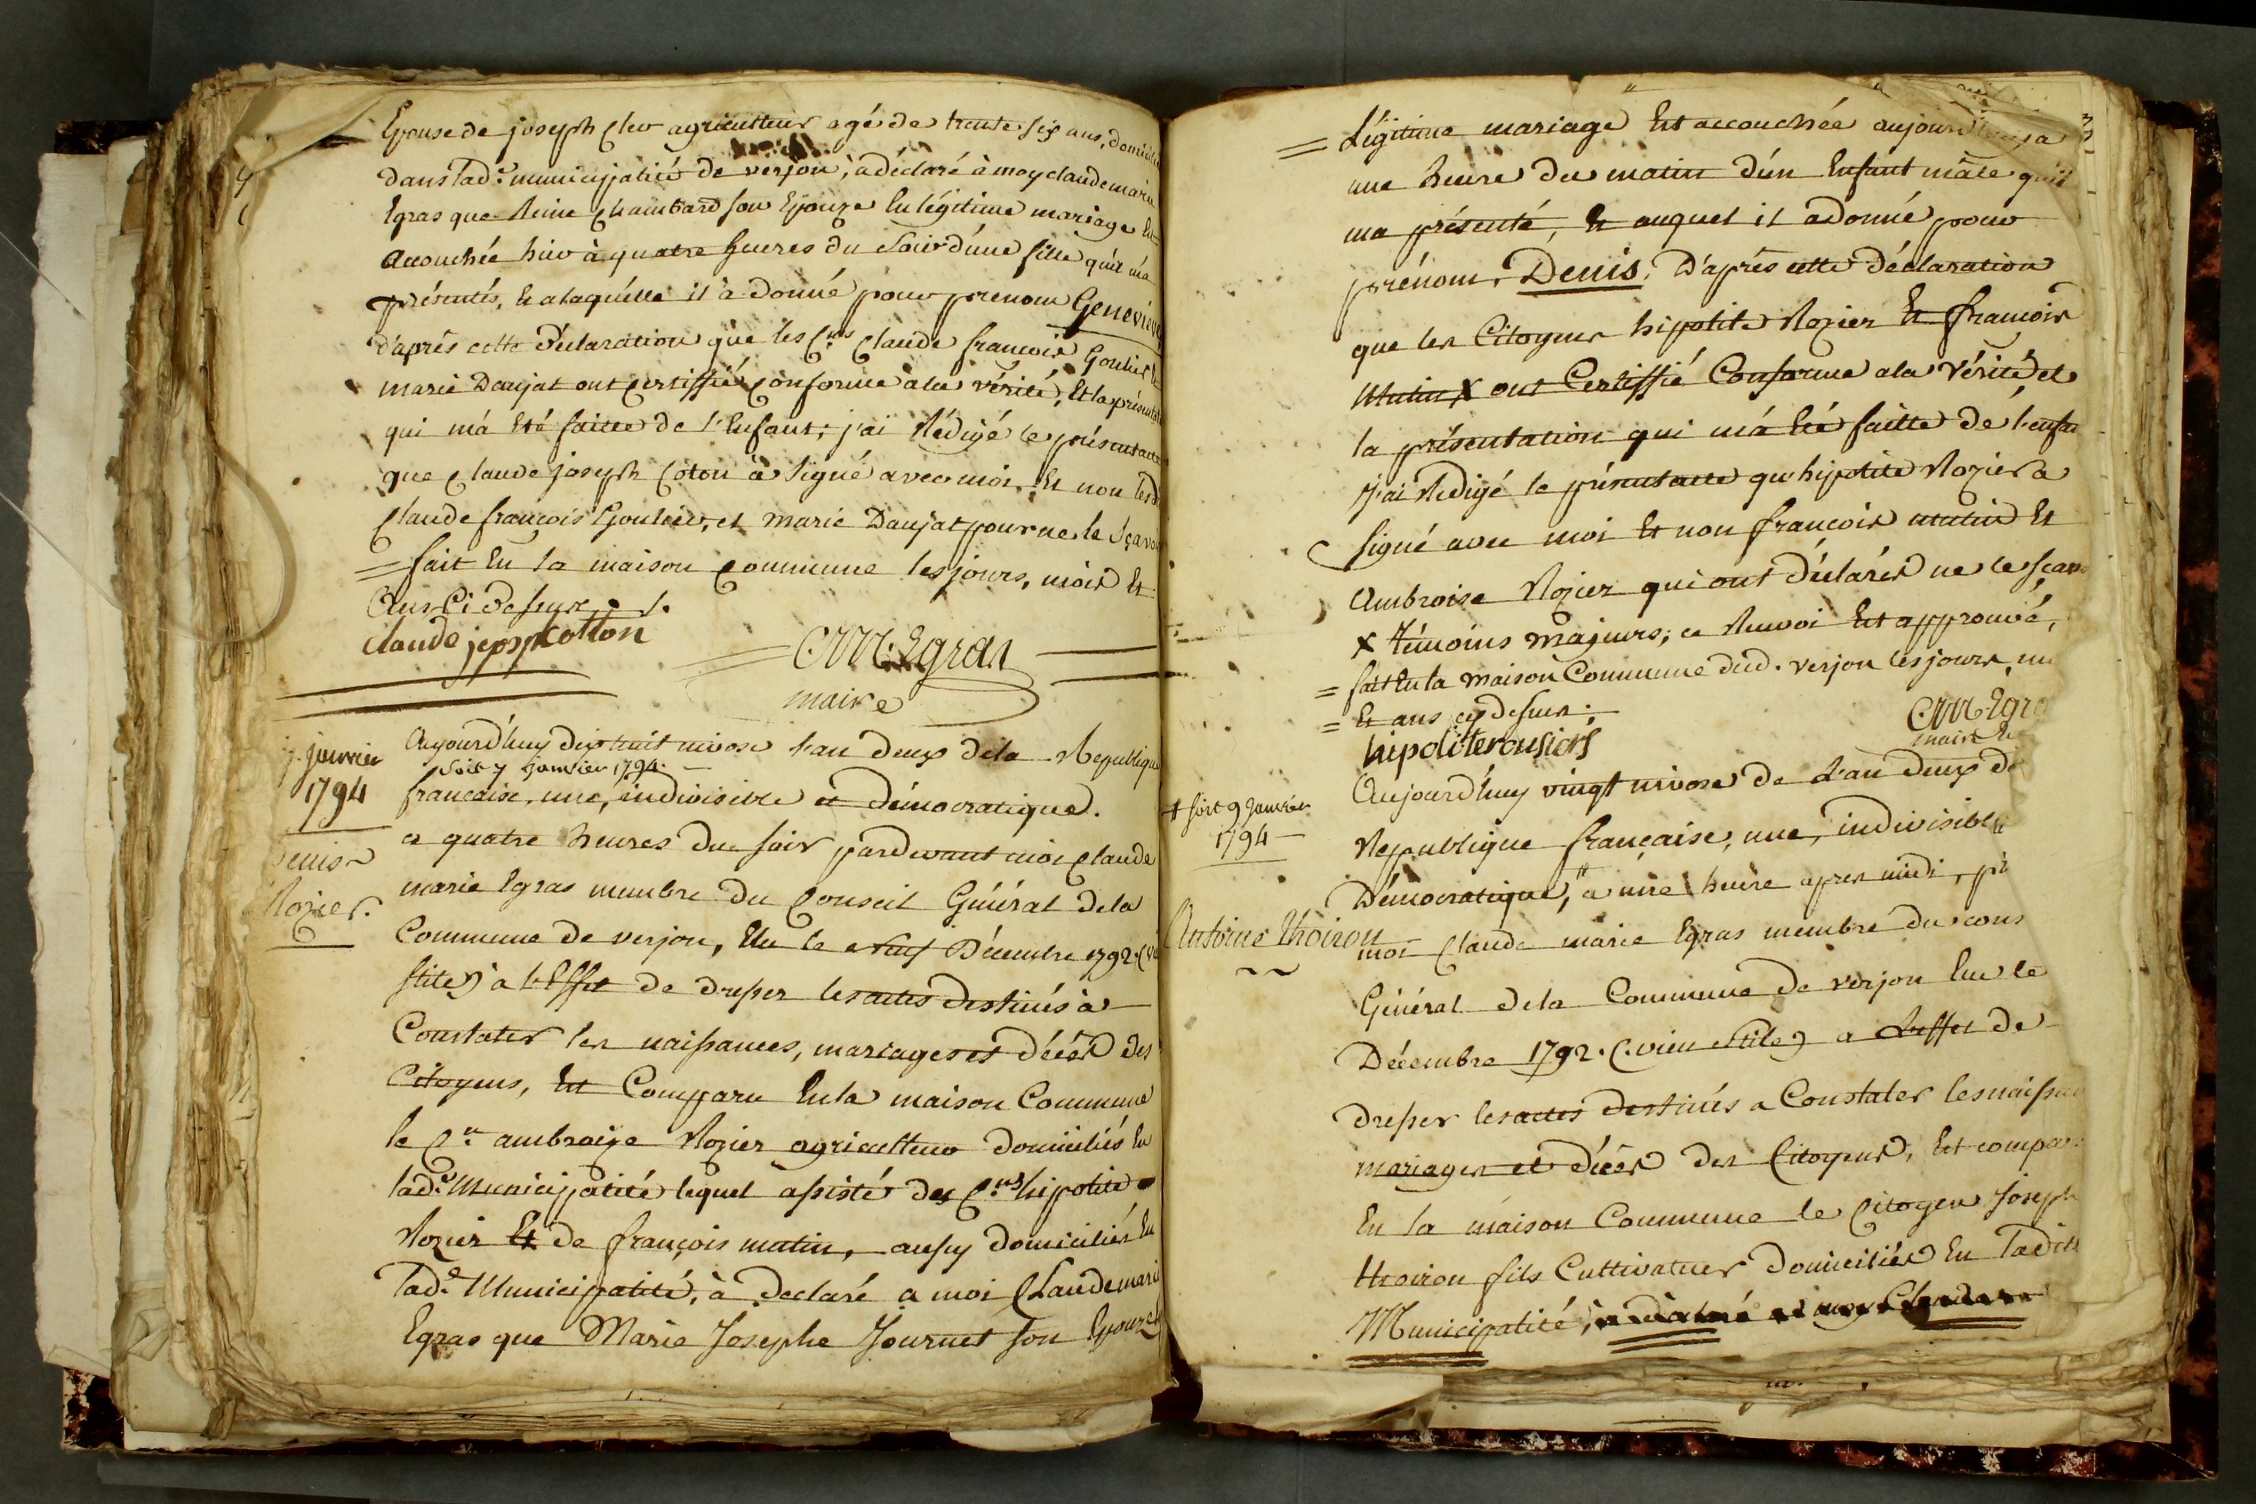 Epouse de joseph Clev agriculteur agé de trente six ans, domicilié
dans lad.e municipalité de verjon, a déclaré à moy claude marie
Egras que Reine Chambard son Epouze En légitime mariage Est
accouchée hier à quatre heures du soir d'une fille qu'il m'a
présentés, Et a laquélle il à donné pour prenom Geneviève
d'aprés cette déclaration que les C.ns Claude francois Goulier
marie Daujat ont Certiffié Conforme a la vérité, Et la présentation
qui m'à Eté faitte de l'Enfant; j'aï Rédigé le présent acte
que Claude joseph Coton à signé avec moi, Et non
Claude françois Goulier, et marie Daujat pour ne le sçavoir
= fait En la maison Commune les jours, mois Et
Claude jepsph cotton
C.M. Egras
maire
7. janvier
1794
Denis
Rozier.
Aujourd'huy dix huit nivose l'an deux de la Republique
soit 7 janvier 1794.
francaise, une, indivisible et démocratique.
a quatre heures du soir pardevant moi Claude
marie Egras membre du Conseil Général de la
Commune de verjon, Elu le neuf Décembre 1792. (vi
stile) à l'Effet de dresser les actes destinés à
Constater les naissances, mariages et décés des
Citoyens, Est Comparu En la maison Commune
le C.n ambroize Rozier agriculteur domiciliés En
lad.e Municipalité lequel assisté des C.ns hipolite
Rozier Et de françois mutin, aussy domiciliés En
lad.e Municipalité, à declaré a moi Claude marie
Egras que Marie Josephe Journet son Epouze
= Légitime mariage Est accouchée aujourd'huy a
une heure du matin d'un Enfant mâle qu'il
ma présenté, Et auquel il a donné pour
prénom, Denis, D'aprés cette déclaration
que les Citoyens hipolite Rozier Et francois
Mutin X ont Certiffié Conforme a la Vérité et
la présentation qui m'á Eté faitte dé l'enfan
j'ai Redigé le présent acte qu'hipolite Rozier a
signé avec moi Et non francois mutin Et
Ambroise Rozier qui ont déclarés ne le sçavo
X témoins majeurs; ce Renvoi Est approuvé,
= fait En la maison Commune dud. verjon les jours, m
= Et ans cy dessus.
hipoliterousiers
C.M. Egra
maire
+ soit 9 Janvier
1794
Antoine Thoiron
Aujourd'huy vingt nivose de l'an deux d
République française, une, indivisible
Démocratique, à une heure apres midi, p
moi Claude marie Egras membre du cons
Général de la Commune de verjon Elu le
Décembre 1792. (vieu stile) a l'effet de
dresser les actes destinés a Constater les naissan
mariages et décés des Citoyens, Est compar
En la maison Commune le Citoyen Joseph
thoiron fils Cultivateur domiciliés En ladit
Municipalité, a déclaré a moy Claude